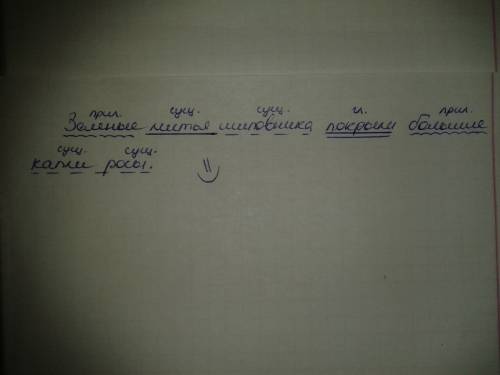 прил. сущ. сущ. гл. прил.
Зеленые листья шиповника покрыли большие
сущ. сущ.
капли росы.